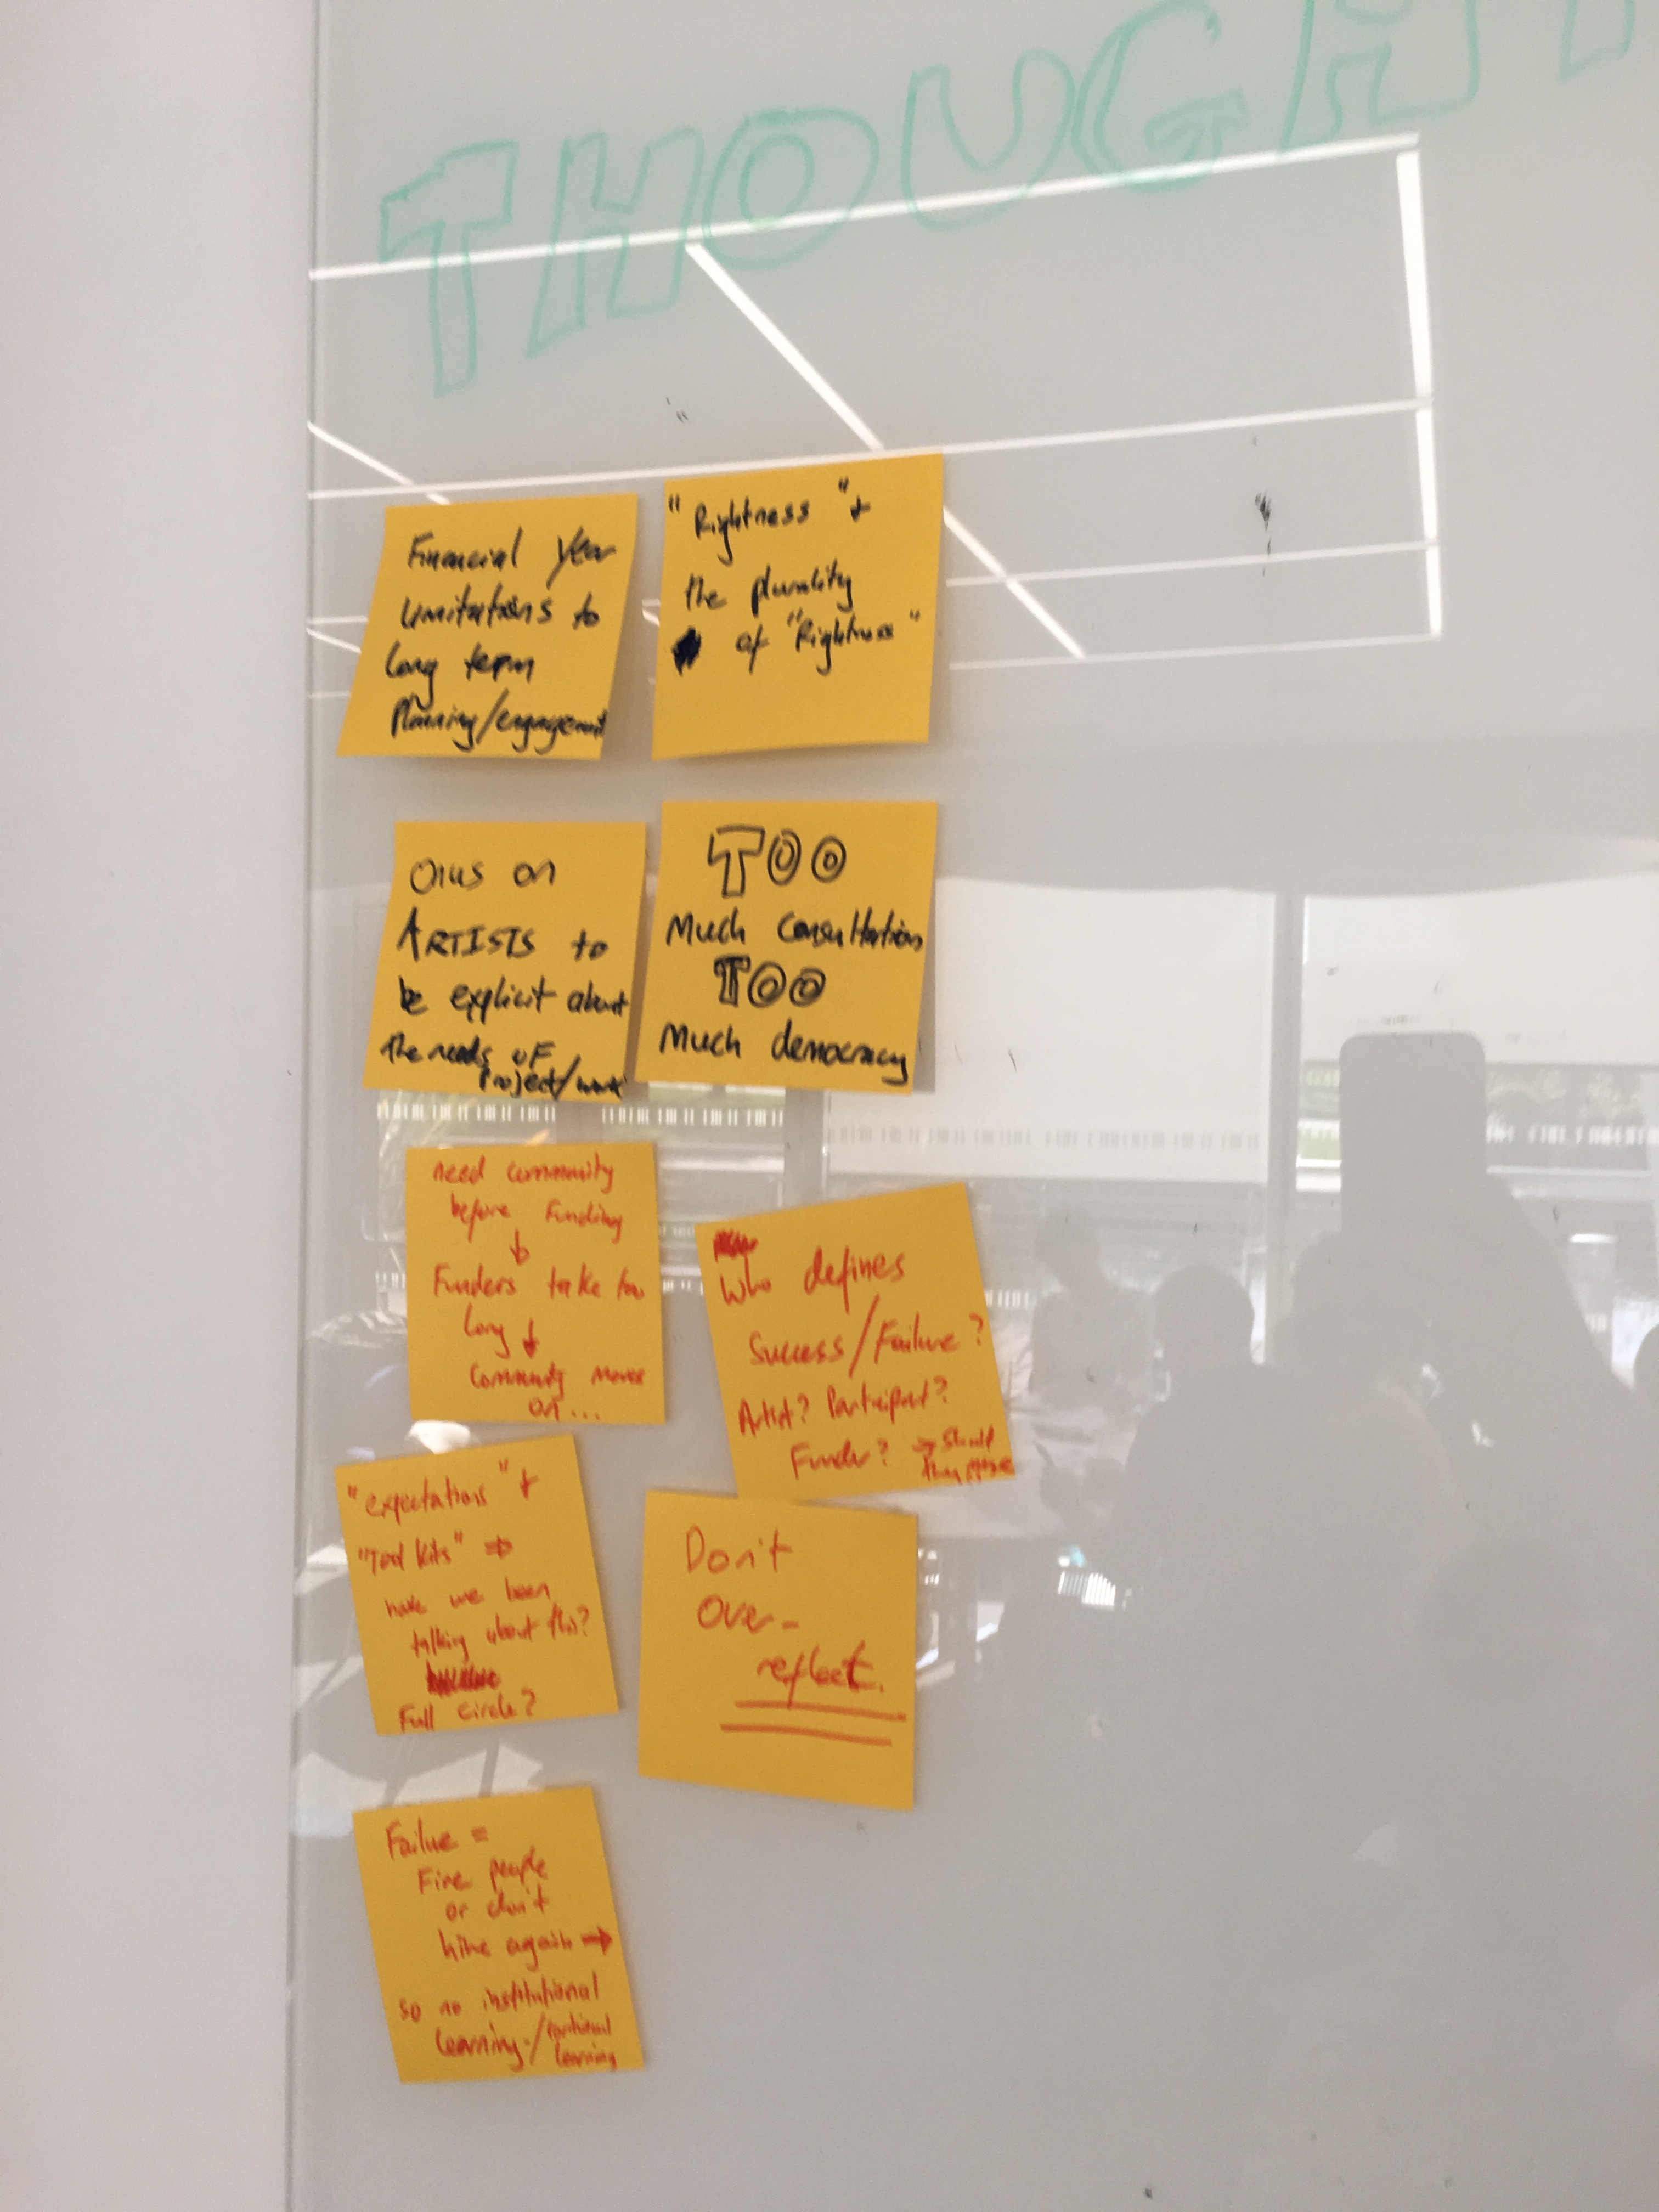 THOUGHT
Financial Year
limitations to
long term
Planning/engagement
"Rightness" +
the plurality
of "Rightness"
Onus on
ARTISTS to
be explicit about
the needs OF
Project/work
TOO
Much Consultation
TOO
Much democracy
need community
before Funding
↓
Funders take too
long ↓
Community moves
on...
Who defines
Success/Failure?
Artist? Participant?
Funder? → Should
they
"expectations" +
"Tool kits" ⇒
have we been
talking about this?
Full circle?
Don't
Over-
reflect.
Failure =
Fire people
or don't
hire again →
so no institutional
learning/
learning